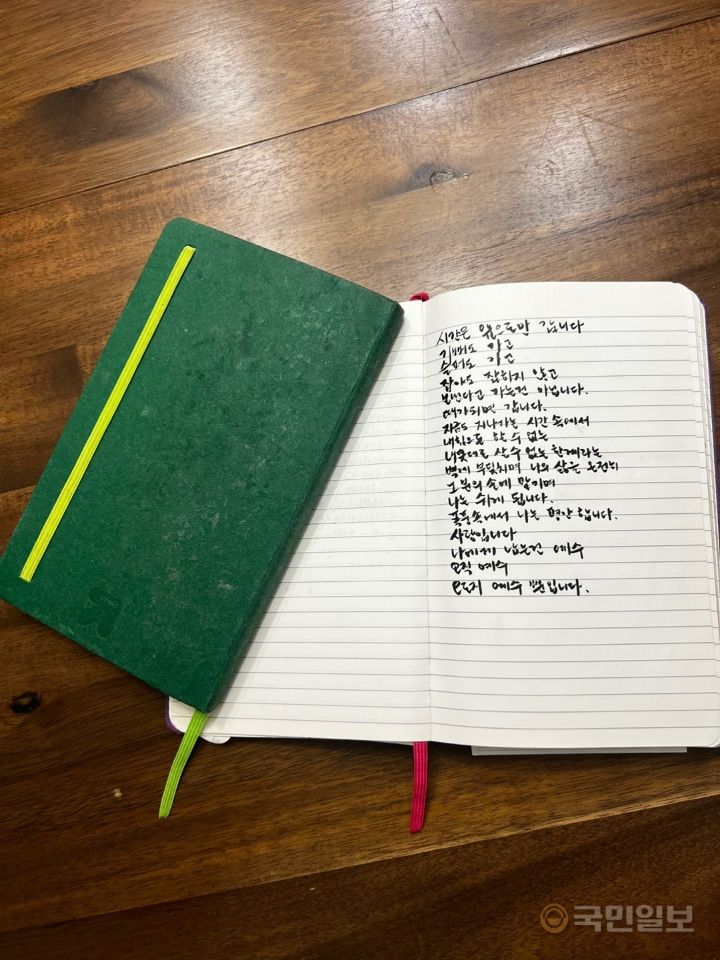 시간은 앞으로만 갑니다
기뻐도 가고
슬퍼도 가고
잡아도 잡히지 않고
보낸다고 가는건 아닙니다.
때가되면 갑니다.
지금도 지나가는 시간 속에서
내힘으로 할 수 없는
내뜻대로 살 수 없는 한계라는
벽에 부딪치며 나의 삶을 온전히
그 분의 손에 맡기며
나는 쉬게 됩니다.
폭풍속에서 나는 평안 합니다.
사랑입니다
나에게 남는건 예수
오직 예수
오로지 예수 뿐입니다.
국민일보